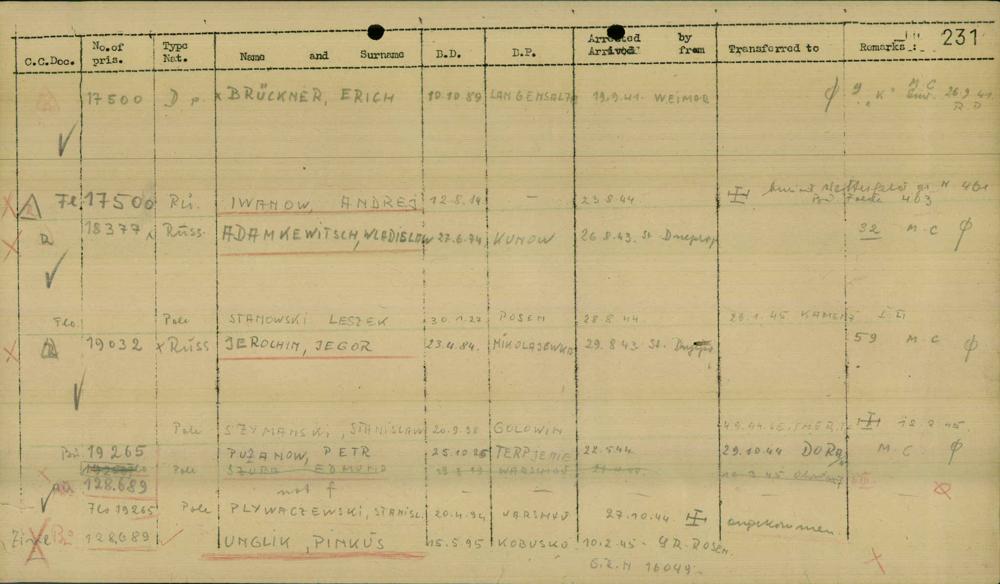 231
C.C.Doc. No.of pris. Type Nat. Name and Surname D.D. D.P. Arrested by Arrived from Transferred to Remarks:
17500 D p. x BRÜCKNER, ERICH 10.10 89 LANGENSALZA 19.9.41. WEIMAR ϕ "K" 26.9.41
Fl. 17500 Rü. IWANOW, ANDREJ 12.5.14 — 23 8.44
18377 Russ ADAMKEWITSCH, WLADISLAW 27.6.94 KUNOW 26.8.43. St. Dneprop 32 M.C ϕ
Flo. Pole STANOWSKI LESZEK 30.1.27 POSEN 28.8.44. 26.1.45 KAMENZ
19032 x Russ JEROCHIN, JEGOR 23.4.84. NIKOLAJEWKA 29.8.43 St. 59 M.C ϕ
Pole SZYMANSKI, STANISLAW 20.9.98 GOLOWIN
Bü. 19265 PUŽANOW, PETR 25.10.25 TERPJENIE 22.5.44 29.10.44 DORA M.C. ϕ
Pole SZUBA EDMUND WARSHAU
128.689 not f — — — —
Flo 19265 Pole PLYWACZEWSKI, STANISL. 20.4.94 WARSHAU 27.10.44. angekommen
128689 UNGLIK, PINKUS 15.5.95 KOBUSKO 10.2.45 - GR. ROSEN.
G.R.N 16049.